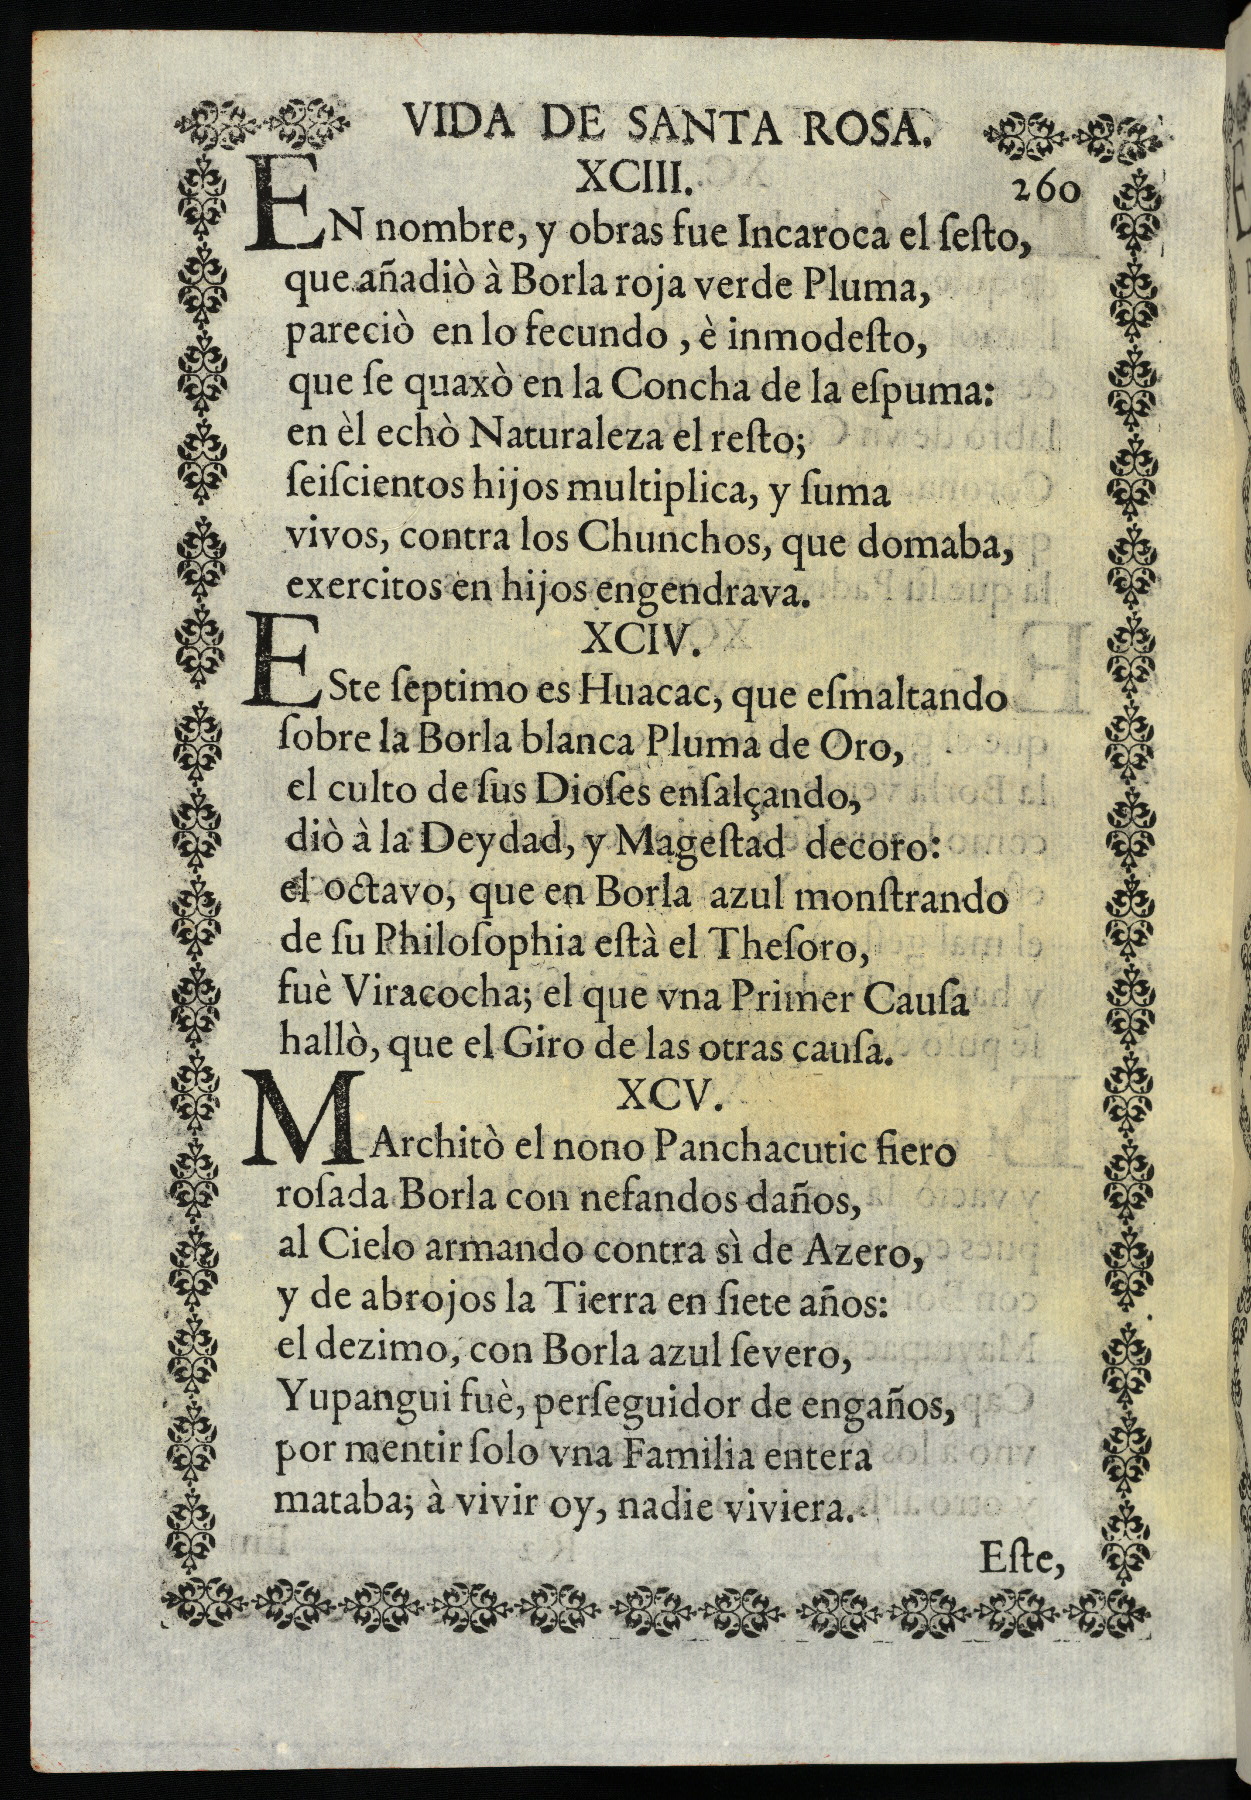 VIDA DE SANTA ROSA.
XCIII.
260
EN nombre, y obras fue Incaroca el ſeſto,
que añadiò à Borla roja verde Pluma,
pareciò en lo fecundo , è inmodeſto,
que ſe quaxò en la Concha de la eſpuma:
en èl echò Naturaleza el reſto;
ſeiſcientos hijos multiplica, y ſuma
vivos, contra los Chunchos, que domaba,
exercitos en hijos engendrava.
XCIV.
ESte ſeptimo es Huacac, que eſmaltando
ſobre la Borla blanca Pluma de Oro,
el culto de ſus Dioſes enſalçando,
diò à la Deydad, y Mageſtad decoro:
el octavo, que en Borla azul monſtrando
de ſu Philoſophia eſtà el Theſoro,
fuè Viracocha; el que vna Primer Cauſa
hallò, que el Giro de las otras cauſa.
XCV.
MArchitò el nono Panchacutic fiero
roſada Borla con nefandos daños,
al Cielo armando contra sì de Azero,
y de abrojos la Tierra en ſiete años:
el dezimo, con Borla azul ſevero,
Yupangui fuè, perſeguidor de engaños,
por mentir ſolo vna Familia entera
mataba; à vivir oy, nadie viviera.
Eſte,